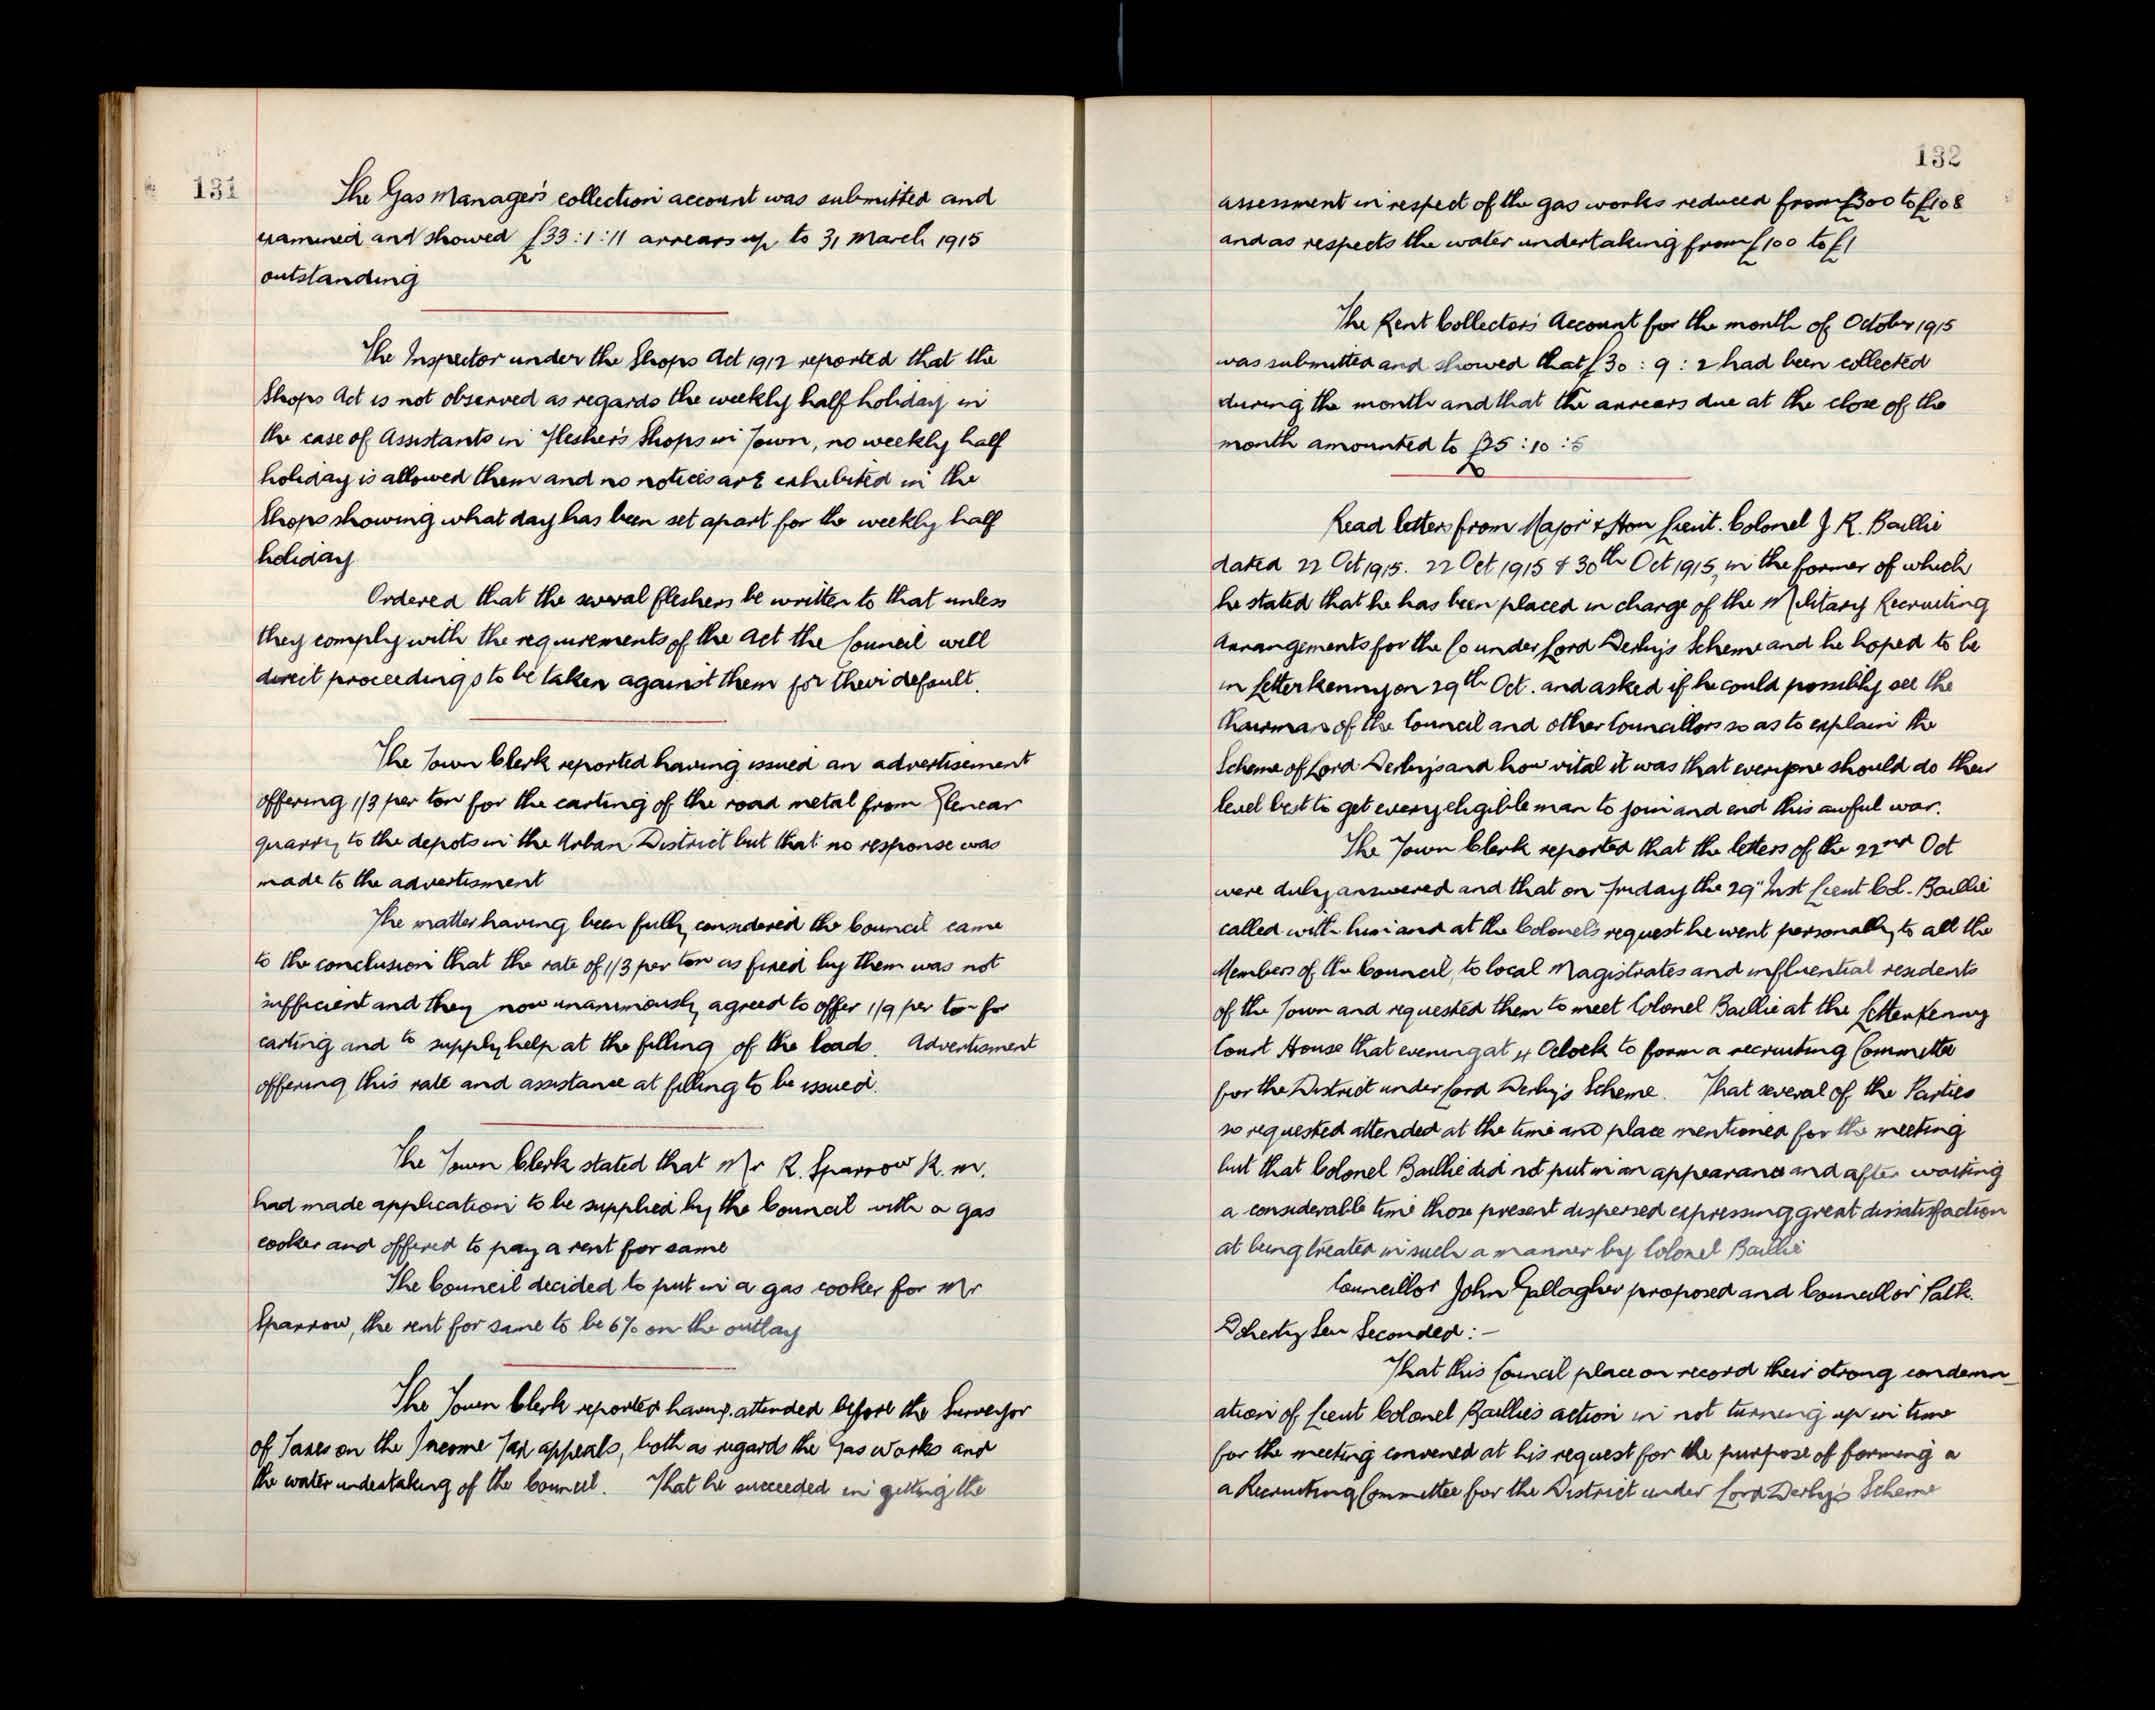 131
The Gas Manager's collection account was submitted and
examined and showed £33:1:11 arrears up to 31 March 1915
outstanding
The Inspector under the Shops Act 1912 reported that the
Shops Act is not observed as regards the weekly half holiday in
the case of Assistants in Flesher's Shops in Town, no weekly half
holiday is allowed them and no notices are exhibited in the
Shops showing what day has been set apart for the weekly half
holiday
Ordered that the several fleshers be written to that unless
they comply with the requirements of the Act the Council will
direct proceedings to be taken against them for their default.
The Town Clerk reported having issued an advertisement
offering 1/3 per ton for the carting of the road metal from Glencar
quarry to the depots in the Urban District but that no response was
made to the advertisment
The matter having been fully considered the Council came
to the conclusion that the rate of 1/3 per ton as fixed by them was not
sufficient and they now unanimously agreed to offer 1/9 per ton for
carting and to supply help at the filling of the loads. Advertisment
offering this rate and assistance at filling to be issued.
The Town Clerk stated that Mr R. Sparrow R.M.
had made application to be supplied by the Council with a gas
cooker and offered to pay a rent for same
The Council decided to put in a gas cooker for Mr
Sparrow, the rent for same to be 6% on the outlay
The Town Clerk reported having attended before the Surveyor
of Taxes on the Income Tax appeals, both as regards the Gas Works and
the water undertaking of the Council. That he succeeded in getting the
132
assessment in respect of the gas works reduced from £300 to £108
and as respects the water undertaking from £100 to £1
The Rent Collector's Account for the month of October 1915
was submitted and showed that £30:9:2 had been collected
during the month and that the arrears due at the close of the
month amounted to £25:10:5
Read letters from Major & Hon Lieut. Colonel J. R. Baillie
dated 22 Oct 1915. 22 Oct 1915 & 30th Oct 1915, in the former of which
he stated that he has been placed in charge of the Military Recruiting
Arrangements for the Co under Lord Derby's Scheme and he hoped to be
in Letterkenny on 29th Oct. and asked if he could possibly see the
Chairman of the Council and other Councillors so as to explain the
Scheme of Lord Derby's and how vital it was that everyone should do their
level best to get every eligible man to join and end this awful war.
The Town Clerk reported that the letters of the 22nd Oct
were duly answered and that on Friday the 29" Inst Lieut Col. Baillie
called with him and at the Colonels request he went personally to all the
Members of the Council, to local Magistrates and influential residents
of the Town and requested them to meet Colonel Baillie at the Letterkenny
Court House that evening at 4 Oclock to form a recruiting Committe
for the District under Lord Derby's Scheme. That several of the Parties
so requested attended at the time and place mentioned for the meeting
but that Colonel Baillie did not put in an appearance and after waiting
a considerable time those present dispersed expressing great dissatisfaction
at being treated in such a manner by Colonel Baillie
Councillor John Gallagher proposed and Councillor Patk.
Doherty Sen Seconded:-
That this Council place on record their strong condemn-
ation of Lieut Colonel Baillie's action in not turning up in time
for the meeting convened at his request for the purpose of forming a
a Recruiting Committee for the District under Lord Derby's Scheme